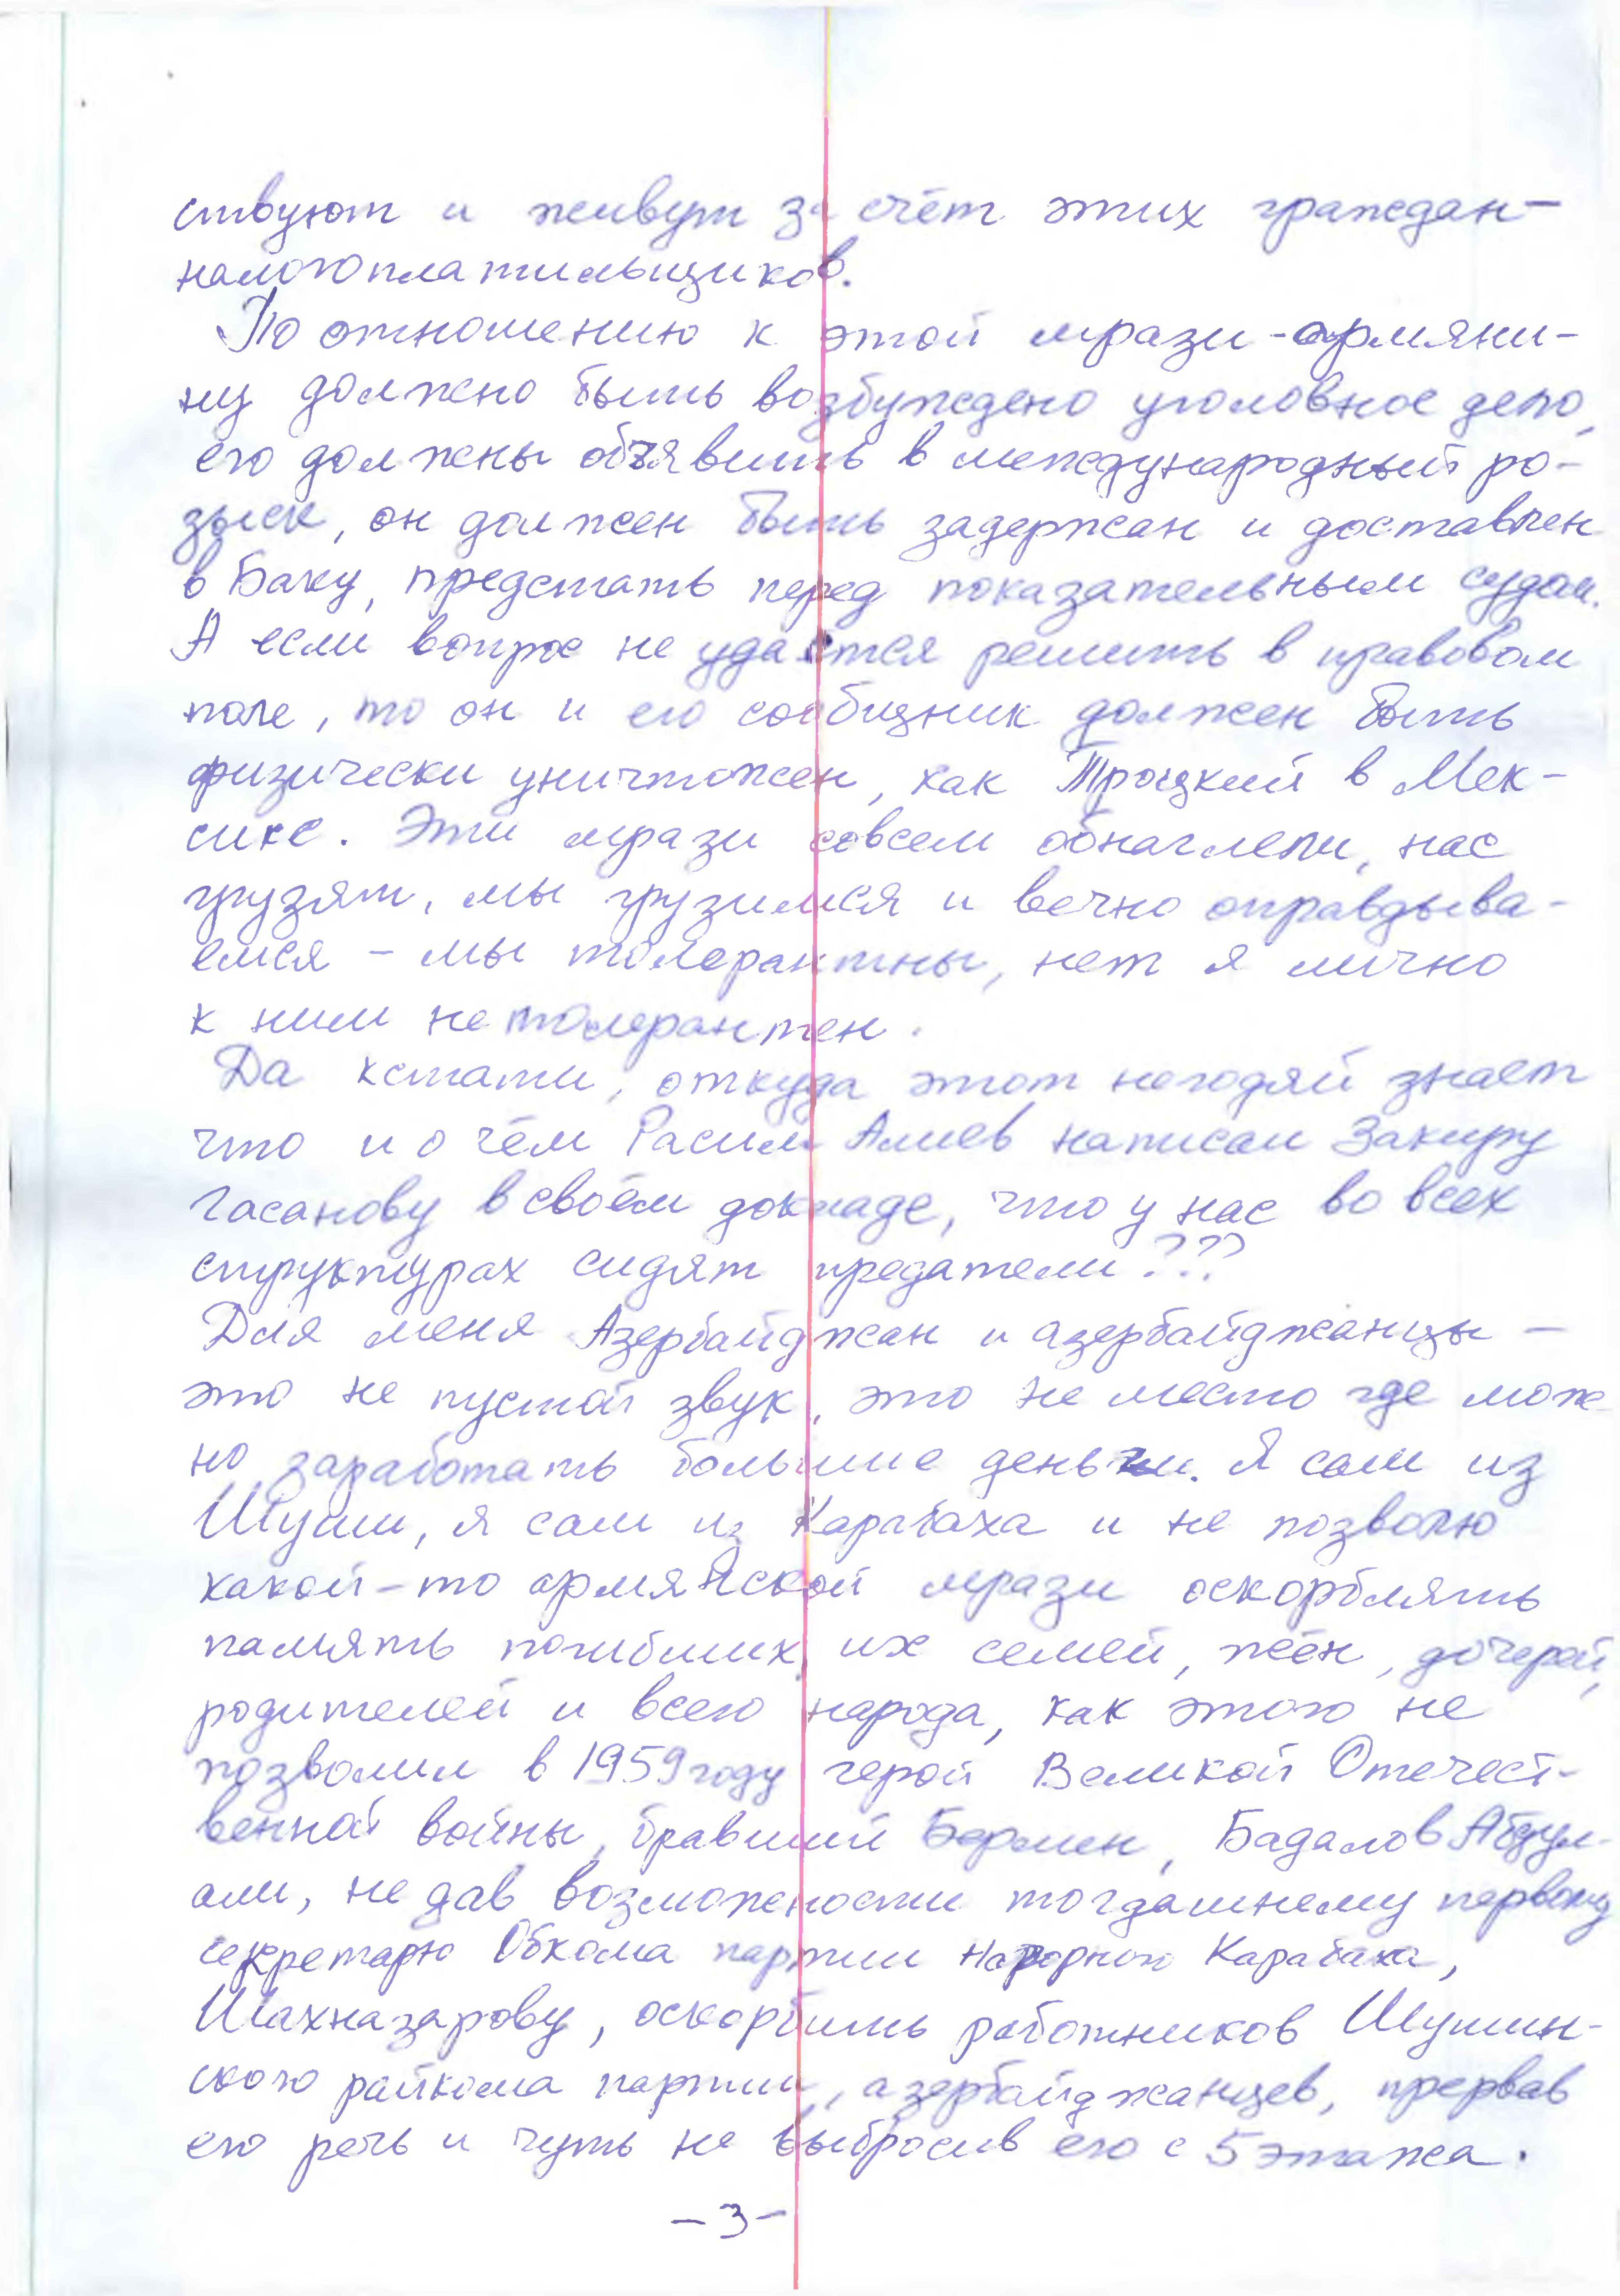 ствуют и живут за счёт этих граждан-
налогоплательщиков.
По отношению к этой мрази-армяни-
ну должно быть возбуждено уголовное дело,
его должны объявить в международный ро-
зыск, он должен быть задержан и доставлен
в Баку, предстать перед показательным судом.
А если вопрос не удастся решить в правовом
поле, то он и его сообщник должен быть
физически уничтожен, как Троцкий в Мек-
сике. Эти мрази совсем обнаглели, нас
грузят, мы грузимся и вечно оправдыва-
емся - мы толерантны, нет я лично
к ним не толерантен.
Да кстати, откуда этот негодяй знает
что и о чём Расим Алиев написал Закиру
Гасанову в своём докладе, что у нас во всех
структурах сидят предатели???
Для меня Азербайджан и азербайджанцы -
это не пустой звук, это не место где мож-
но заработать большие деньги. Я сам из
Шуши, я сам из Карабаха и не позволю
какой-то армянской мрази оскорблять
память погибших, их семей, жён, дочерей,
родителей и всего народа, как этого не
позволил в 1959 году герой Великой Отечест-
венной войны, бравший Берлин, Бадалов Абдул-
али, не дав возможности тогдашнему первому
секретарю Обкома партии Нагорного Карабаха,
Шахназарову, оскорбить работников Шушин-
ского райкома партии, азербайджанцев, прервав
его речь и чуть не выбросив его с 5 этажа.
-3-